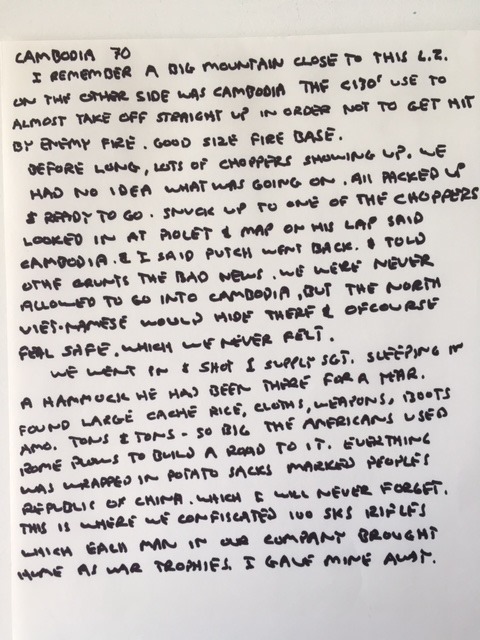 CAMBODIA 70
I REMEMBER A BIG MOUNTAIN CLOSE TO THIS L.Z.
ON THE OTHER SIDE WAS CAMBODIA THE C130' USE TO
ALMOST TAKE OFF STRAIGHT UP IN ORDER NOT TO GET HIT
BY ENEMY FIRE. GOOD SIZE FIRE BASE.
BEFORE LONG, LOTS OF CHOPPERS SHOWING UP. WE
HAD NO IDEA WHAT WAS GOING ON. All PACKED UP
& READY TO GO. SNUCK UP TO ONE OF THE CHOPPERS
LOOKED IN AT PIOLET & MAP ON HIS LAP SAID
CAMBODIA. & I SAID WENT BACK. & TOLD
OTHE GRUNTS THE BAD NEWS. WE WERE NEVER
ALLOWED TO GO INTO CAMBODIA, BUT THE NORTH
VIET-NAMESE WOULD HIDE THERE & OFCOURSE
FEAL SAFE. WHICH WE NEVER FELT.
WE WENT IN & SHOT 1 SUPPLY SGT. SLEEPING IN
A HAMMOCK HE HAD BEEN THERE FOR A YEAR.
FOUND LARGE CACHE RICE, CLOTHS, WEAPONS, BOOTS
AMO. TONS & TONS - SO BIG THE AMERICANS USED
ROME PLOWS TO BUILD A ROAD TO IT. EVERTHING
WAS WRAPPED IN POTATO SACKS MARKED PEOPLES
REPUBLIC OF CHINA. WHICH I WILL NEVER FORGET.
THIS IS WHERE WE CONFISCATED 100 SKS RIFLES
WHICH EACH MAN IN OUR COMPANY BROUGHT
HOME AS WAR TROPHIES. I GAVE MINE AWAY.